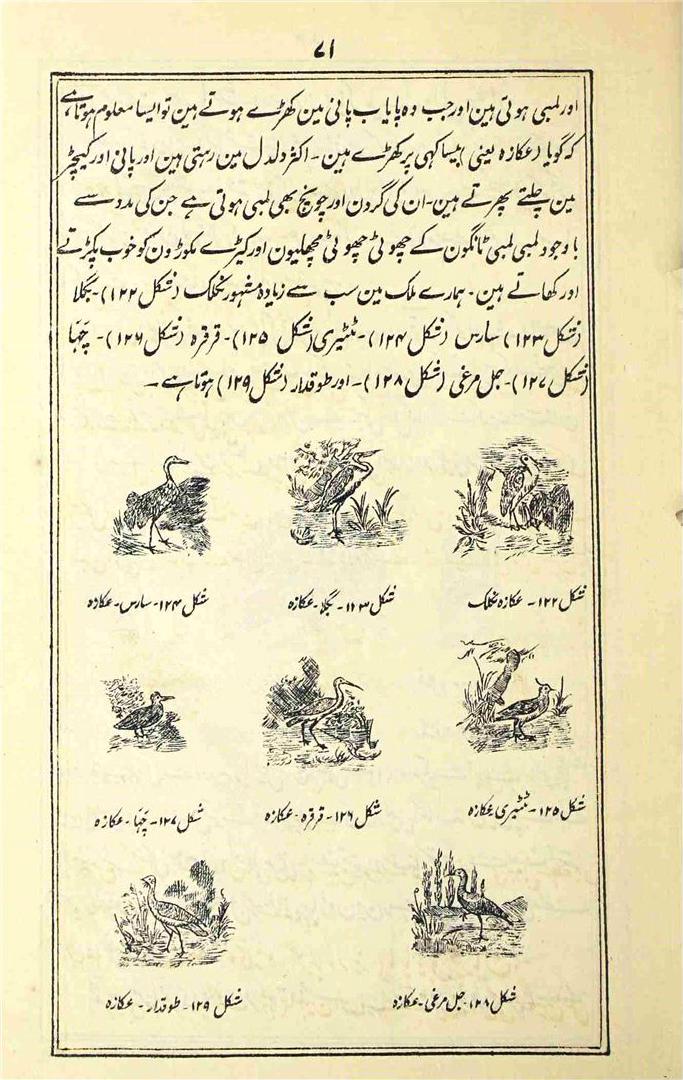 ۷۱
اور لمبی ہوتی ہین اور جب وہ پایاب پانی مین کھڑے ہوتے ہین تو ایسا معلوم ہوتا ہے
کہ گویا (عکازہ یعنی) بیساکھی پر کھڑے ہین ۔ اکثر دلدل مین رہتی ہین اور پانی اور کیچڑ
مین چلتے پھرتے ہین ۔ ان کی گردن اور چونچ بھی لمبی ہوتی ہے جن کی مدد سے
باوجود لمبی لمبی ٹانگون کے چھوٹی چھوٹی مچھلیون اور کیڑے مکوڑون کو خوب پکڑتے
اور کھاتے ہین ۔ ہمارے ملک مین سب سے زیادہ مشہور نحلک (شکل ۱۲۲) ۔ بگلا
(شکل ۱۲۳) سارس (شکل ۱۲۴) ۔ ٹٹیری (شکل ۱۲۵) ۔ قرقرہ (شکل ۱۲۶) ۔ چَہا
(شکل ۱۲۷) ۔ جل مرغی (شکل ۱۲۸) ۔ اور طوقدار (شکل ۱۲۹) ہوتا ہے ۔
شکل ۱۲۲ ۔ عکازہ نحلک
شکل ۱۲۳ ۔ بگلا ۔ عکازہ
شکل ۱۲۴ ۔ سارس ۔ عکازہ
شکل ۱۲۵ ۔ ٹٹیری عکازہ
شکل ۱۲۶ ۔ قرقرہ ۔ عکازہ
شکل ۱۲۷ ۔ چَہا ۔ عکازہ
شکل ۱۲۸ ۔ جل مرغی ۔ عکازہ
شکل ۱۲۹ ۔ طوقدار ۔ عکازہ